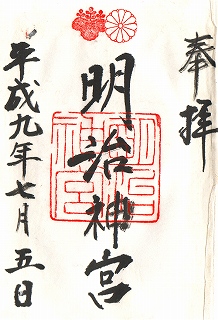 奉拝
明治神宮
平成九年七月五日